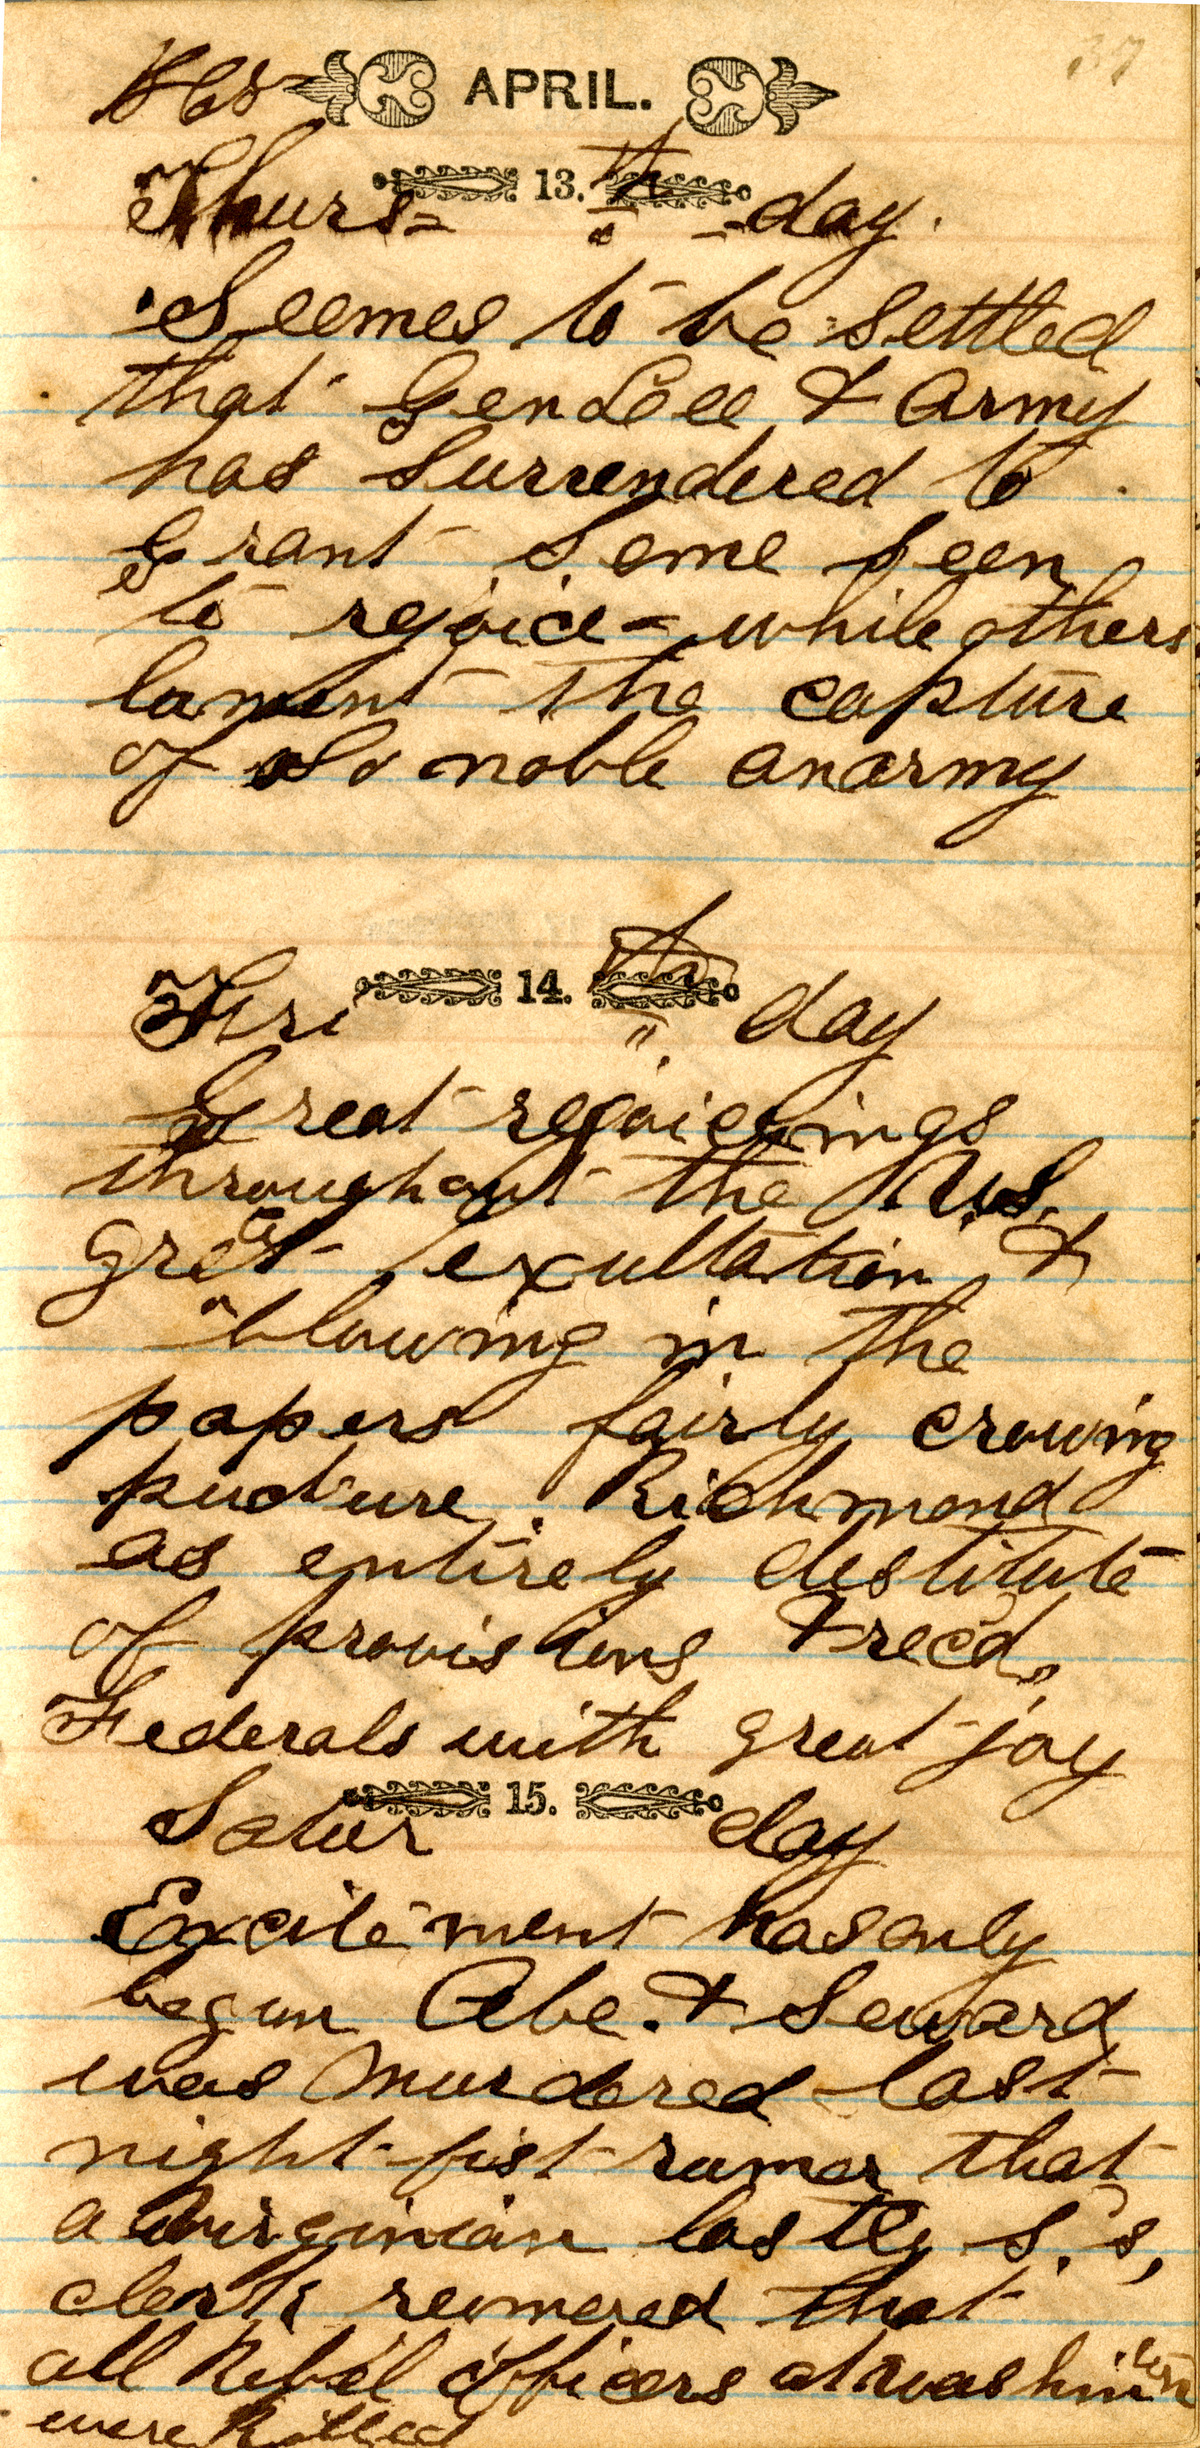 1865 APRIL. 37
Thurs- 13. th -day.
Seemes to be settled
that Gen Lee & army
has surrendered to
Grant Some seen
to rejoice - while others
lament the capture
of So noble an army
Fri 14. th day
Great rejoiceings
throughout the U.S.
great exultation &
blowing in the
papers fairly crowing
picture Richmond
as entirely destitute
of provisions & recd.
Federals with great joy
Satur 15. day
Excitement has only
begun Abe. & Seward
was murdered last
night fist rumer that
a Virginian lastly S.'s,
clerk reumered that
all Rebel officers at washinton
were Killed